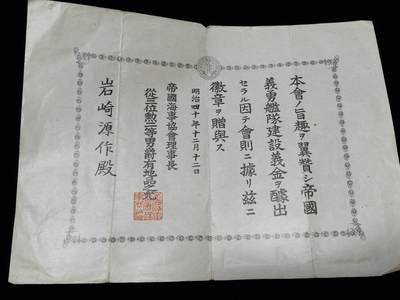 本會ノ旨趣ヲ翼賛シ帝國
義勇艦隊建設義金ヲ醵出
セラル因テ會則ニ據リ茲ニ
徽章ヲ贈與ス
明治四十年十二月十二日
帝國海事協會理事長
從三位勲二等男爵有地品之允
岩崎源作殿